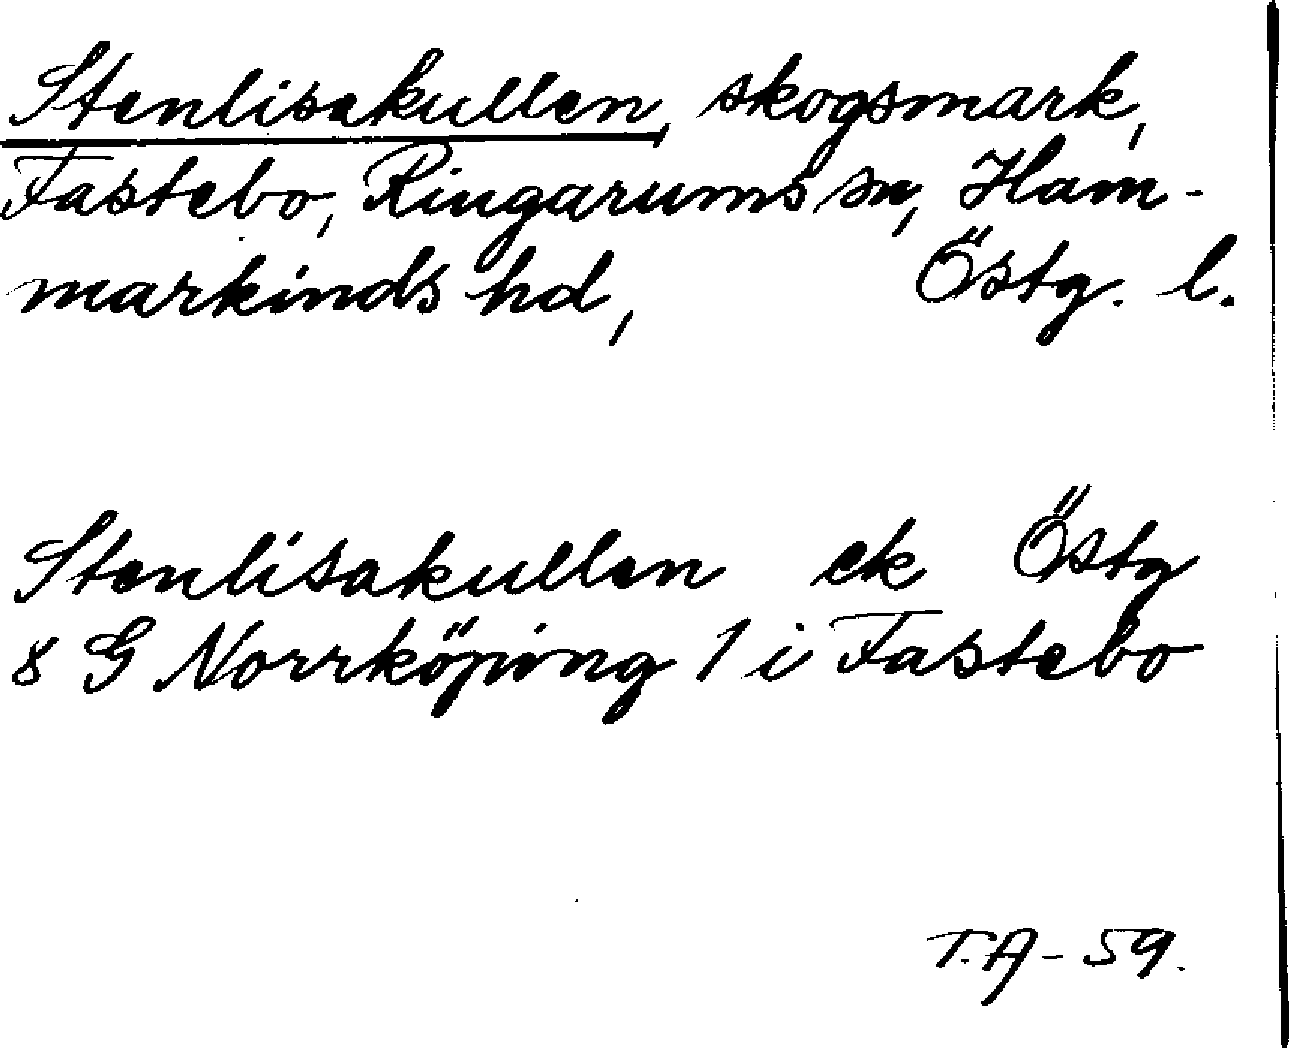 Stenlisakullen, skogsmark,
Fastebo, Ringarums sn, Ham-
markinds hd, Östg. l.
Stenlisakullen ek Östg
8 G Norrköping 1 i Fastebo
T.A-59.